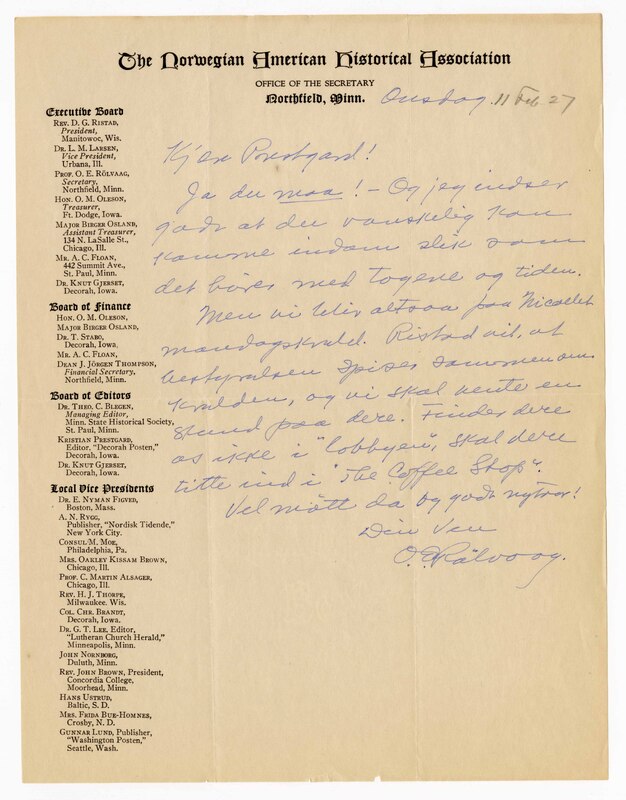 The Norwegian American Historical Association
OFFICE OF THE SECRETARY
Northfield, Minn.
Onsdag. 11 Feb 27
Executive Board
REV. D. G. RISTAD,
President,
Manitowoc, Wis.
DR. L. M. LARSEN,
Vice President,
Urbana, Ill.
PROF. O. E. RÖLVAAG,
Secretary,
Northfield, Minn.
HON. O. M. OLESON,
Treasurer,
Ft. Dodge, Iowa.
MAJOR BIRGER OSLAND,
Assistant Treasurer,
134 N. LaSalle St.,
Chicago, Ill.
MR. A. C. FLOAN,
442 Summit Ave.,
St. Paul, Minn.
DR. KNUT GJERSET,
Decorah, Iowa.
Board of Finance
HON. O. M. OLESON,
MAJOR BIRGER OSLAND,
DR. T. STABO,
Decorah, Iowa.
MR. A. C. FLOAN,
DEAN J. JÖRGEN THOMPSON,
Financial Secretary,
Northfield, Minn.
Board of Editors
DR. THEO. C. BLEGEN,
Managing Editor,
Minn. State Historical Society,
St. Paul, Minn.
KRISTIAN PRESTGARD,
Editor, "Decorah Posten,"
Decorah, Iowa.
DR. KNUT GJERSET,
Decorah, Iowa.
Local Vice Presidents
DR. E. NYMAN FIGVED,
Boston, Mass.
A. N. RYGG,
Publisher, "Nordisk Tidende,"
New York City.
CONSUL M. MOE,
Philadelphia, Pa.
MRS. OAKLEY KISSAM BROWN,
Chicago, Ill.
PROF. C. MARTIN ALSAGER,
Chicago, Ill.
REV. H. J. THORPE,
Milwaukee. Wis.
COL. CHR. BRANDT,
Decorah, Iowa.
DR. G. T. LEE, Editor,
"Lutheran Church Herald,"
Minneapolis, Minn.
JOHN NORNBORG,
Duluth, Minn.
REV. JOHN BROWN, President,
Concordia College,
Moorhead, Minn.
HANS USTRUD,
Baltic, S. D.
MRS. FRIDA BUE-HOMNES,
Crosby, N. D.
GUNNAR LUND, Publisher,
"Washington Posten,"
Seattle, Wash.
Kjære Prestgard!
Ja du maa! – Og jeg indser
godt at du vanskelig kan
komme indom slik som
det bæres med togene og tiden.
Men vi blir altsaa paa Nicollet
mandagskveld. Ristad vil, at
bestyrelsen spiser sammen om
kvelden, og vi skal vente en
stund paa dere. Finder dere
os ikke i "lobbyen", skal dere
titte ind i "The Coffee Shop".
Vel møtt da og godt nytaar!
Din Ven
O. E. Rølvaag.